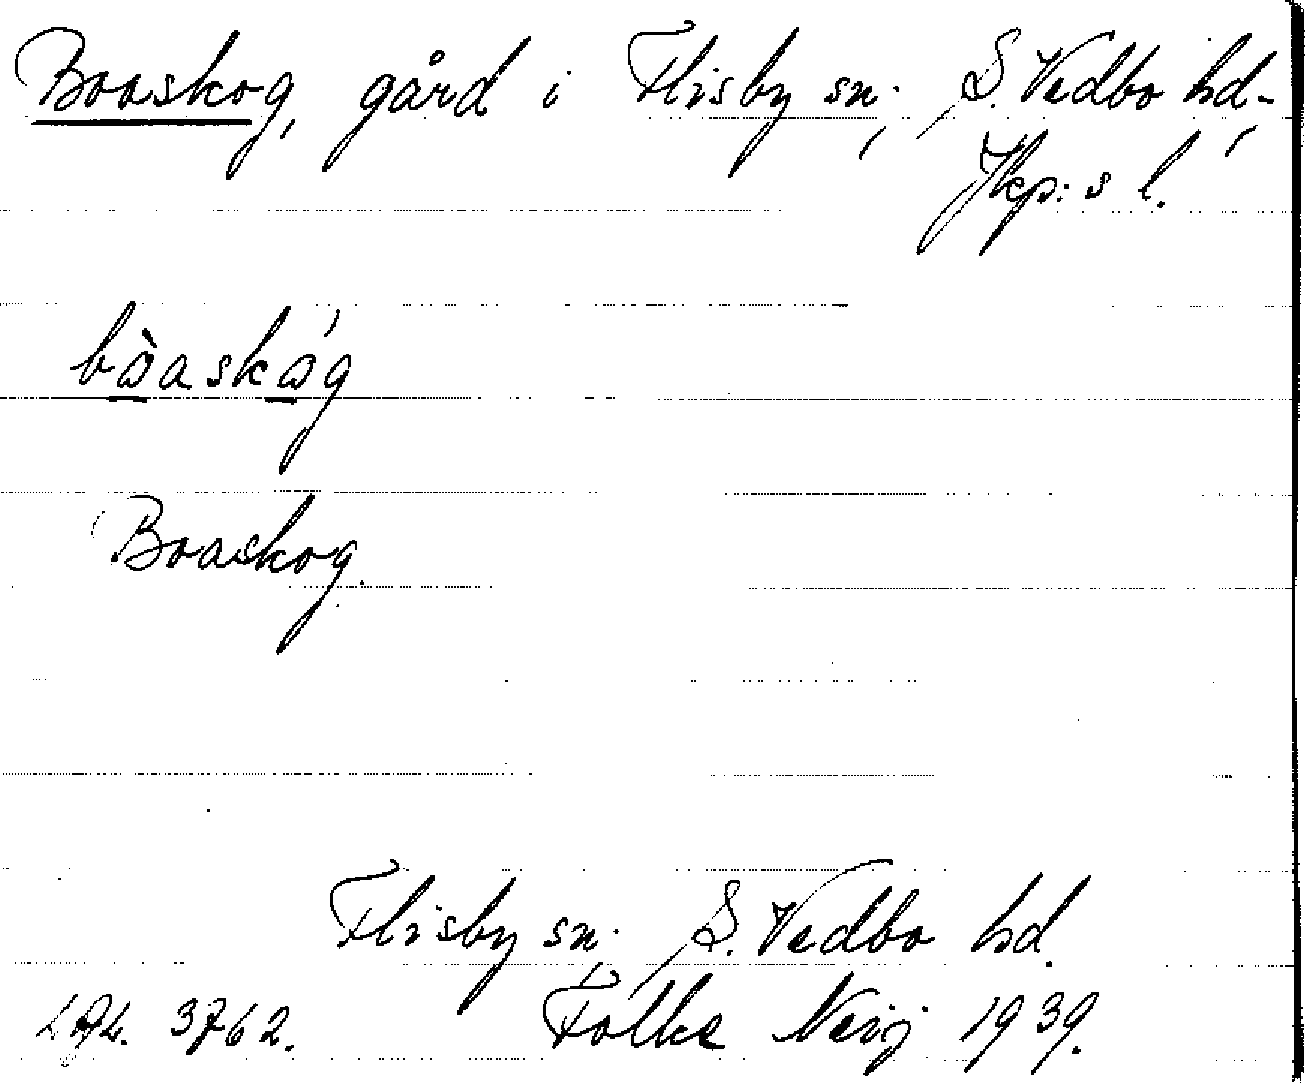 Boaskog, gård i Flisby sn, S. Vedbo hd,
Jkp:s l.
bòaskóg
Boaskog.
Flisby sn, S. Vedbo hd.
3762. Folke 1939.